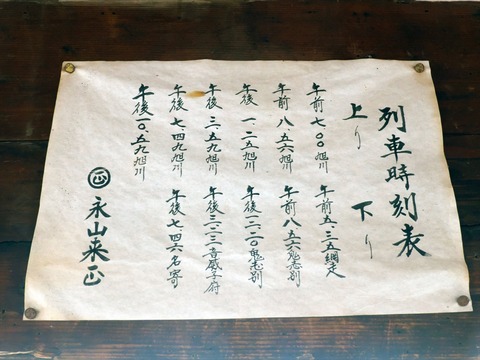 列車時刻表
上り 下り
午前七・〇〇旭川 午前五・三五網走
午前八・五六旭川 午前八・五六鬼志別
午後一・二五旭川 午後一二・二〇鬼志別
午後三・五九旭川 午後三・二三音威子府
午後七・四九旭川 午後七・四六名寄
午後一〇・五九旭川
㊣永山来正